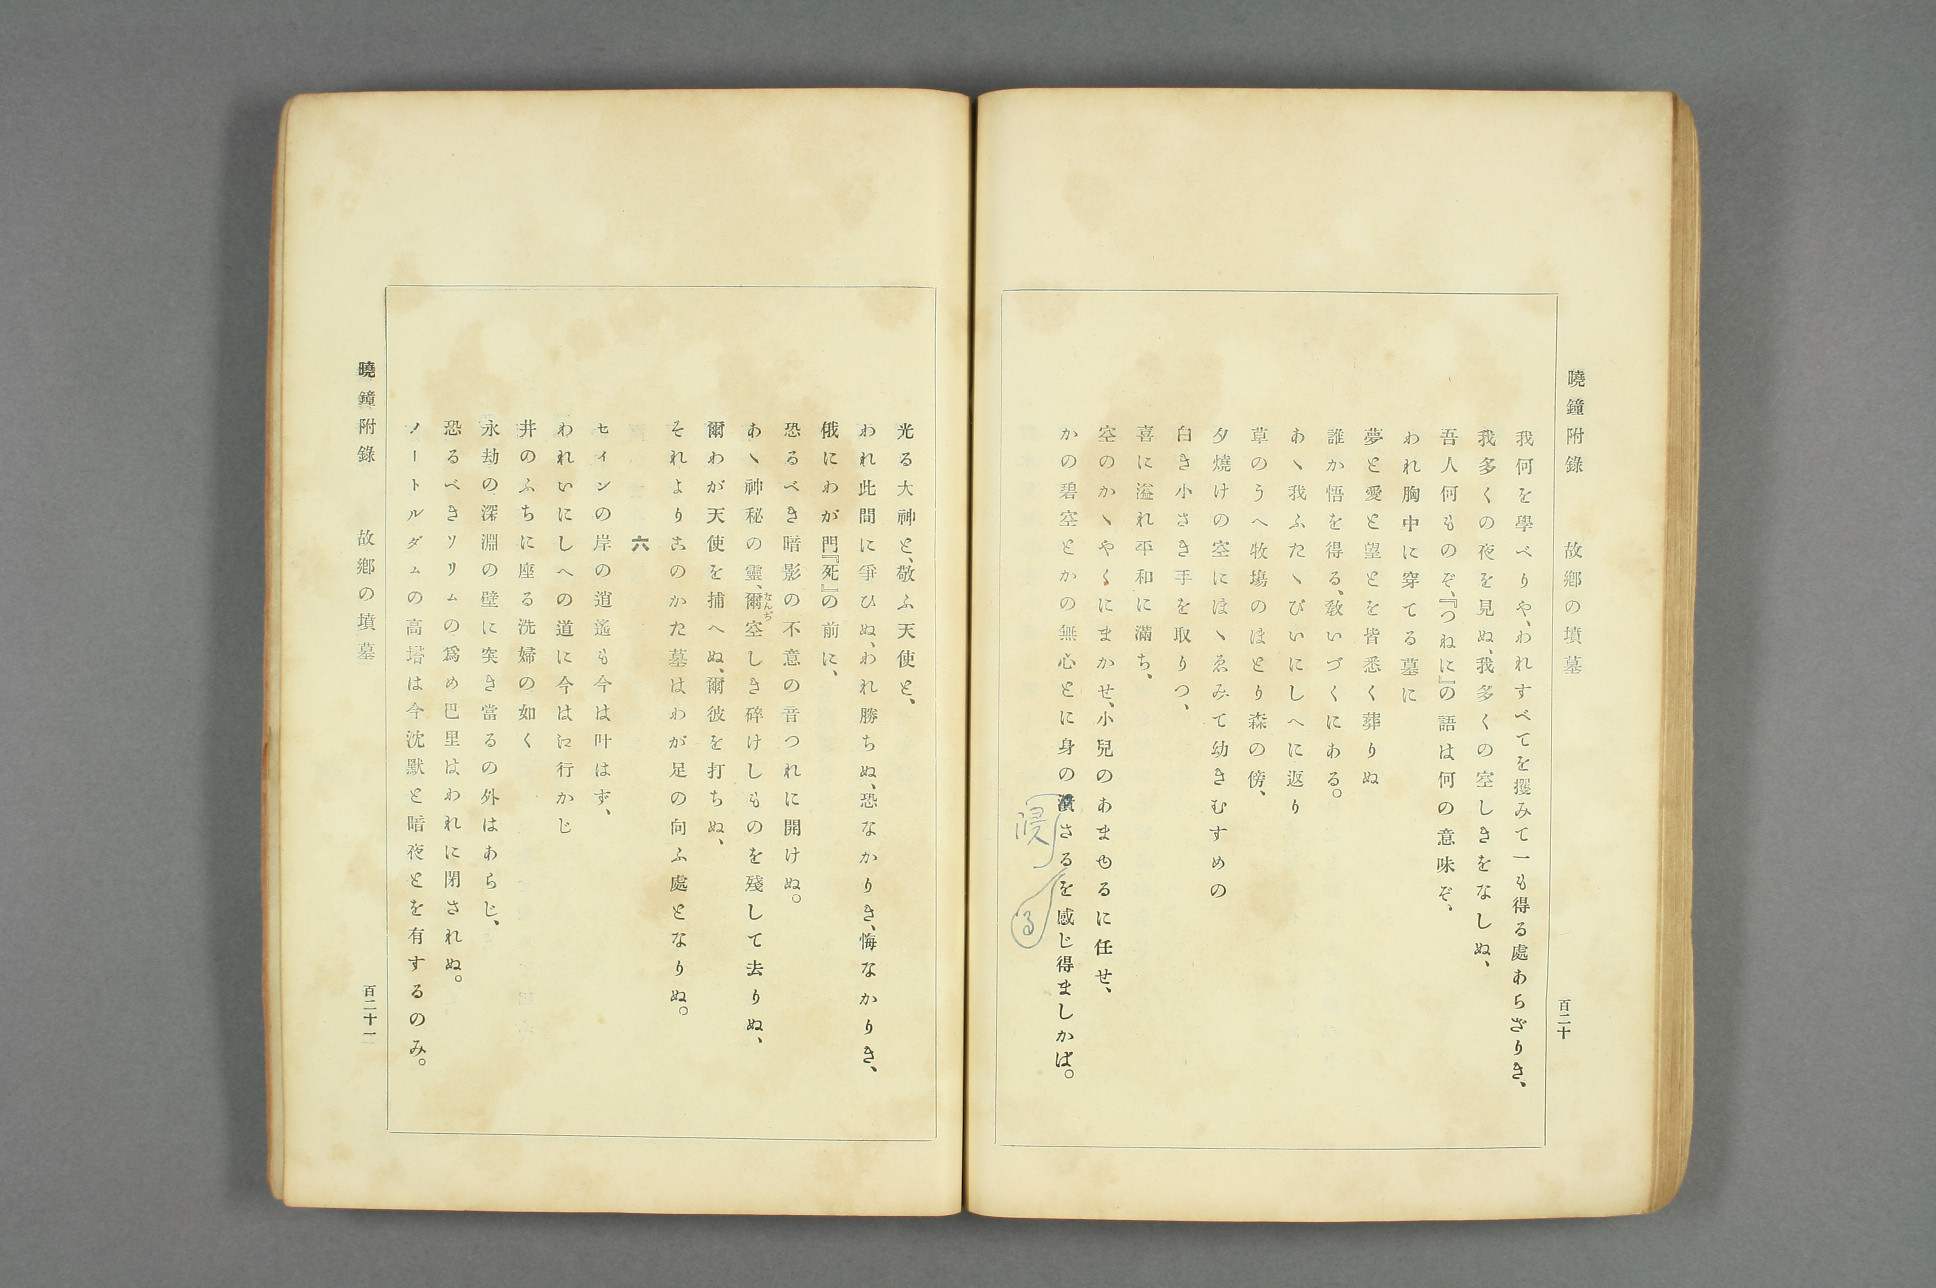 曉鐘附錄　故鄕の墳墓
百二十
我何を學べりや、われすべてを攫みて一も得る處あらざりき、
我多くの夜を見ぬ、我多くの空しきをなしぬ、
吾人何ものぞ、『つねに』の語は何の意味ぞ、
われ胸中に穿てる墓に
夢と愛と望とを皆悉く葬りぬ
誰か悟を得る、敎いづくにある。
あヽ我ふたヽびいにしへに返り
草のうへ牧塲のほとり森の傍、
夕燒けの空にほヽゑみて幼きむすめの
白き小さき手を取りつ、
喜に溢れ平和に滿ち、
空のかヽやくにまかせ、小兒のあまゆるに任せ、
かの碧空とかの無心とに身の漬さるを感じ得ましかば。
浸
る
光る大神と、敬ふ天使と、
われ此間に爭ひぬ、われ勝ちぬ、恐なかりき、悔なかりき、
俄にわが門『死』の前に、
恐るべき暗影の不意の音つれに開けぬ。
あヽ神秘の靈、爾空しき碎けしものを殘して去りぬ、
なんぢ
爾わが天使を捕へぬ、爾彼を打ちぬ、
それよりこのかた墓はわが足の向ふ處となりぬ。
六
セインの岸の逍遙も今は叶はず、
われいにしへの道に今は行かじ
井のふちに座る洗婦の如く
永劫の深淵の壁に突き當るの外はあらじ、
恐るべきソリムの爲め巴里はわれに閉されぬ。
ノートルダムの高塔は今沈默と暗夜とを有するのみ。
曉鐘附錄　故鄕の墳墓
百二十一